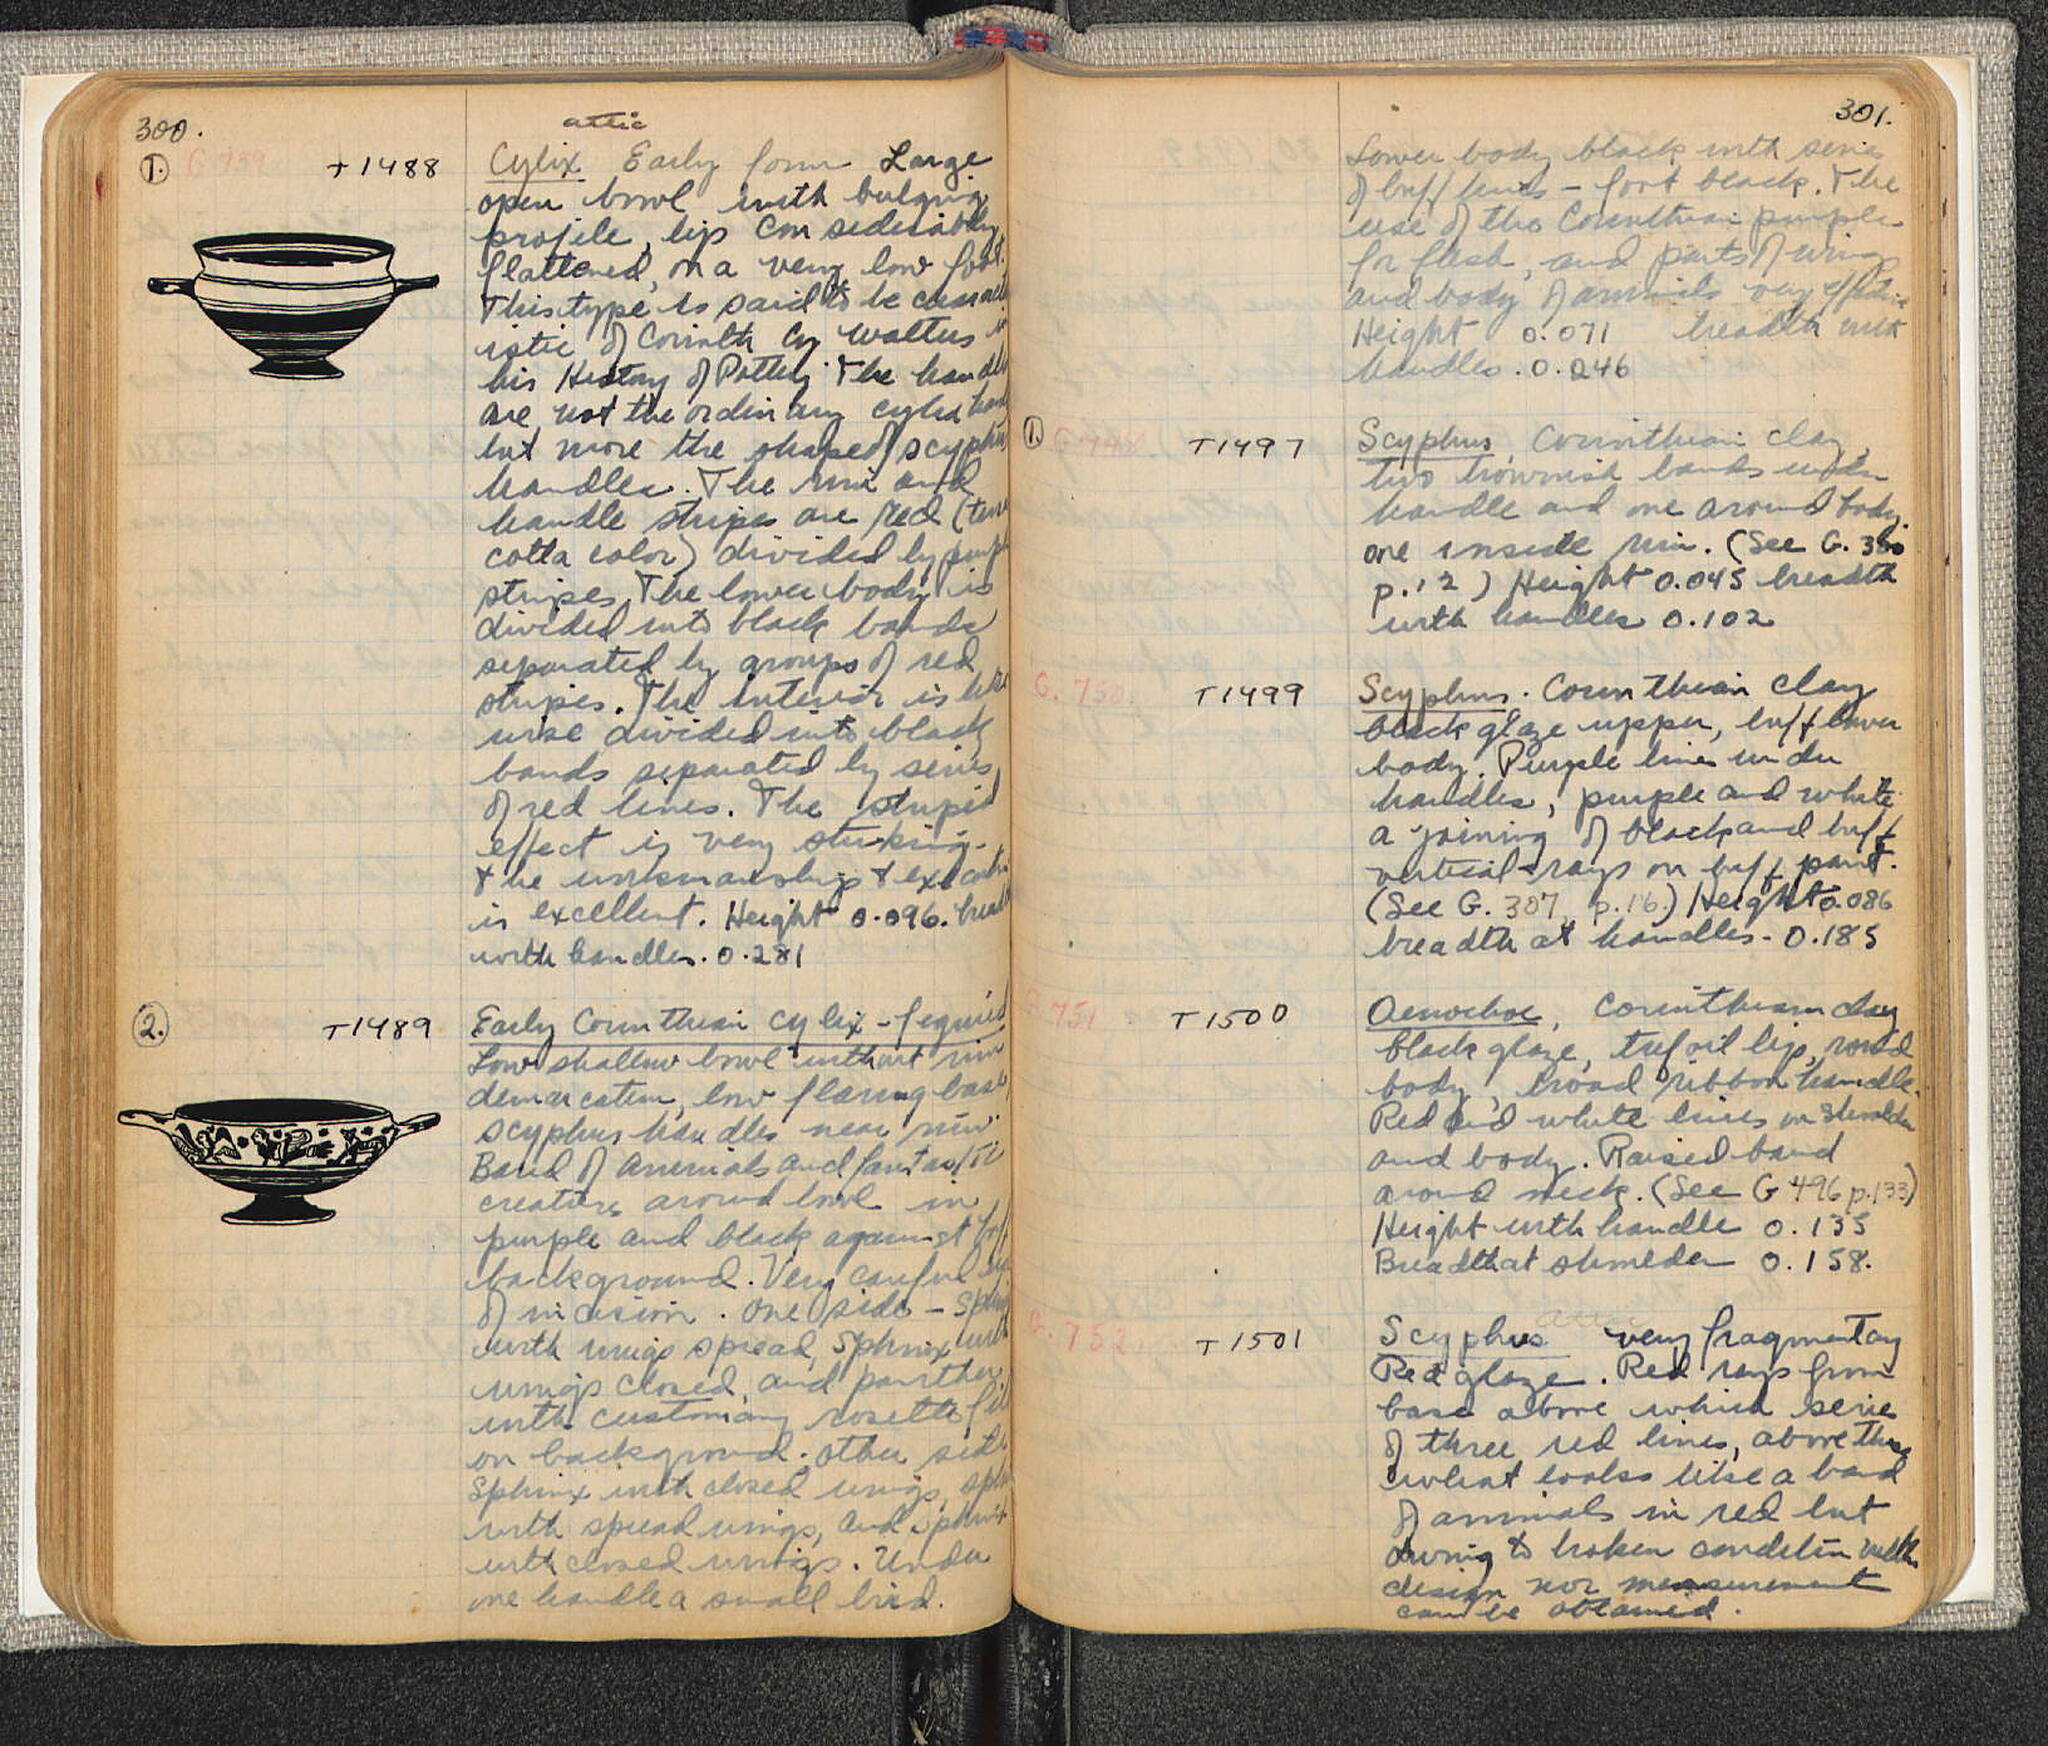 300.
attic
1. G 739 T 1488 Cylix Early form Large
open bowl with bulging
profile, lip considerably
flattened, on a very low foot.
This type is said to be
istic of Corinth by Walters in
his History of Pottery. The handles
are not the ordinary cylix
but more the shape of scyphus
handles. The rim and
handle stripes are red (terra
cotta color) divided by purple
stripes. The lower body is
divided into black bands
separated by groups of red
stripes. The interior is like
wise divided into black
bands separated by series
of red lines. The striped
effect is very striking.
The workmanship &
is excellent. Height 0.096. breadth
with handles. 0.281
2. T 1489 Early Corinthian Cylix - figured
Low shallow bowl without rim
demarcation, low flaring base,
scyphus handles near rim.
Band of animals and fantastic
creatures around bowl in
purple and black against buff
background. Very careful use
of incision. One side -
with wings spread, Sphinx with
wings closed, and panther
with customary rosette
on background. Other side
Sphinx with closed wings,
with spread wings, and sphinx
with closed wings. Under
one handle a small bird.
301.
Lower body black with series
of buff lines - foot black. The
use of the Corinthian purple
for flesh, and parts of wings
and body of animals very effective
Height 0.071 breadth with
handles. 0.246
1. G 748 T 1497 Scyphus, Corinthian clay,
two brownish bands under
handle and one around body
one inside rim. (See G. 380
p. 12) Height 0.045 breadth
with handles 0.102
G. 750. T 1499 Scyphus. Corinthian clay
black glaze upper, buff lower
body. Purple line under
handles, purple and white
a joining of black and buff
vertical rays on buff part.
(See G. 307, p. 16.) Height 0.086
breadth at handles - 0.185
G. 751 T 1500 Oenochoe, Corinthian clay
black glaze, trefoil lip, round
body, broad ribbon handle.
Red and white lines on shoulder
and body. Raised band
around neck. (See G 496 p. 133)
Height with handle 0.135
Breadth at shoulder 0.158.
attic
G. 752. T 1501 Scyphus very fragmentary
Red glaze. Red rays from
base above which series
of three red lines, above these
what looks like a band
of animals in red but
owing to broken condition neither
design nor measurement
can be obtained.